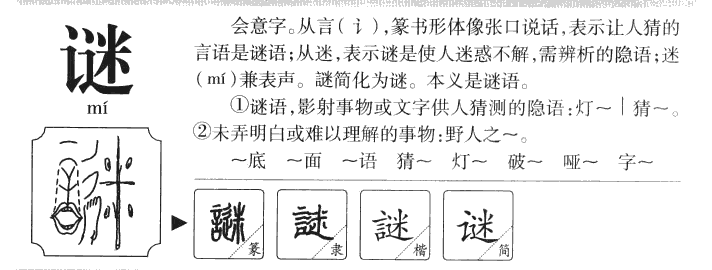 谜
mí
会意字。从言(讠),篆书形体像张口说话,表示让人猜的
言语是谜语;从迷,表示谜是使人迷惑不解,需辨析的隐语;迷
(mí)兼表声。謎简化为谜。本义是谜语。
①谜语,影射事物或文字供人猜测的隐语:灯～｜猜～。
②未弄明白或难以理解的事物:野人之～。
～底 ～面 ～语 猜～ 灯～ 破～ 哑～ 字～
謎 篆 謎 隶 謎 楷 谜 简